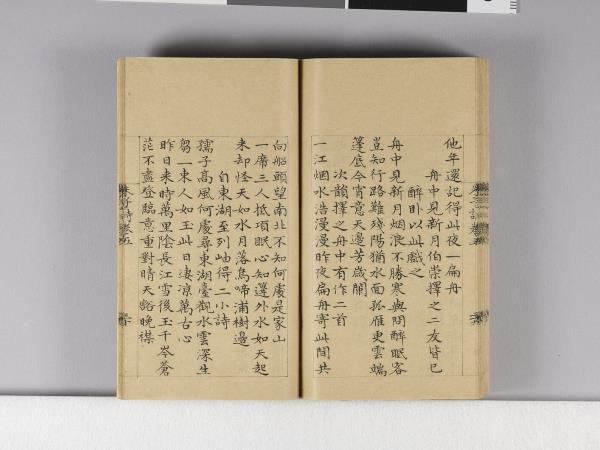 他年還記得此夜一扁舟
舟中見新月伯崇擇之二友皆已
醉眠以此戲之
舟中見新月烟浪不勝寒與問醉眠客
豈知行路難殘陽猶水面孤雁更雲端
篷底今宵意天邊芳歲闌
次韻擇之舟中有作二首
一江烟水浩漫漫昨夜扁舟寄此間共
向船頭望南北不知何處是家山
一席三人抵項眠心知篷外水如天起
來却怪天如水月落烏啼浦樹邊
自東湖至列岫得二小詩
孺子高風何處尋東湖臺觀水雲深生
芻一束人如玉此日淒涼萬古心
昨日來時萬里陰長江雪後玉千岑蒼
茫不盡登臨意重對晴天豁晚襟
朱子詩卷五